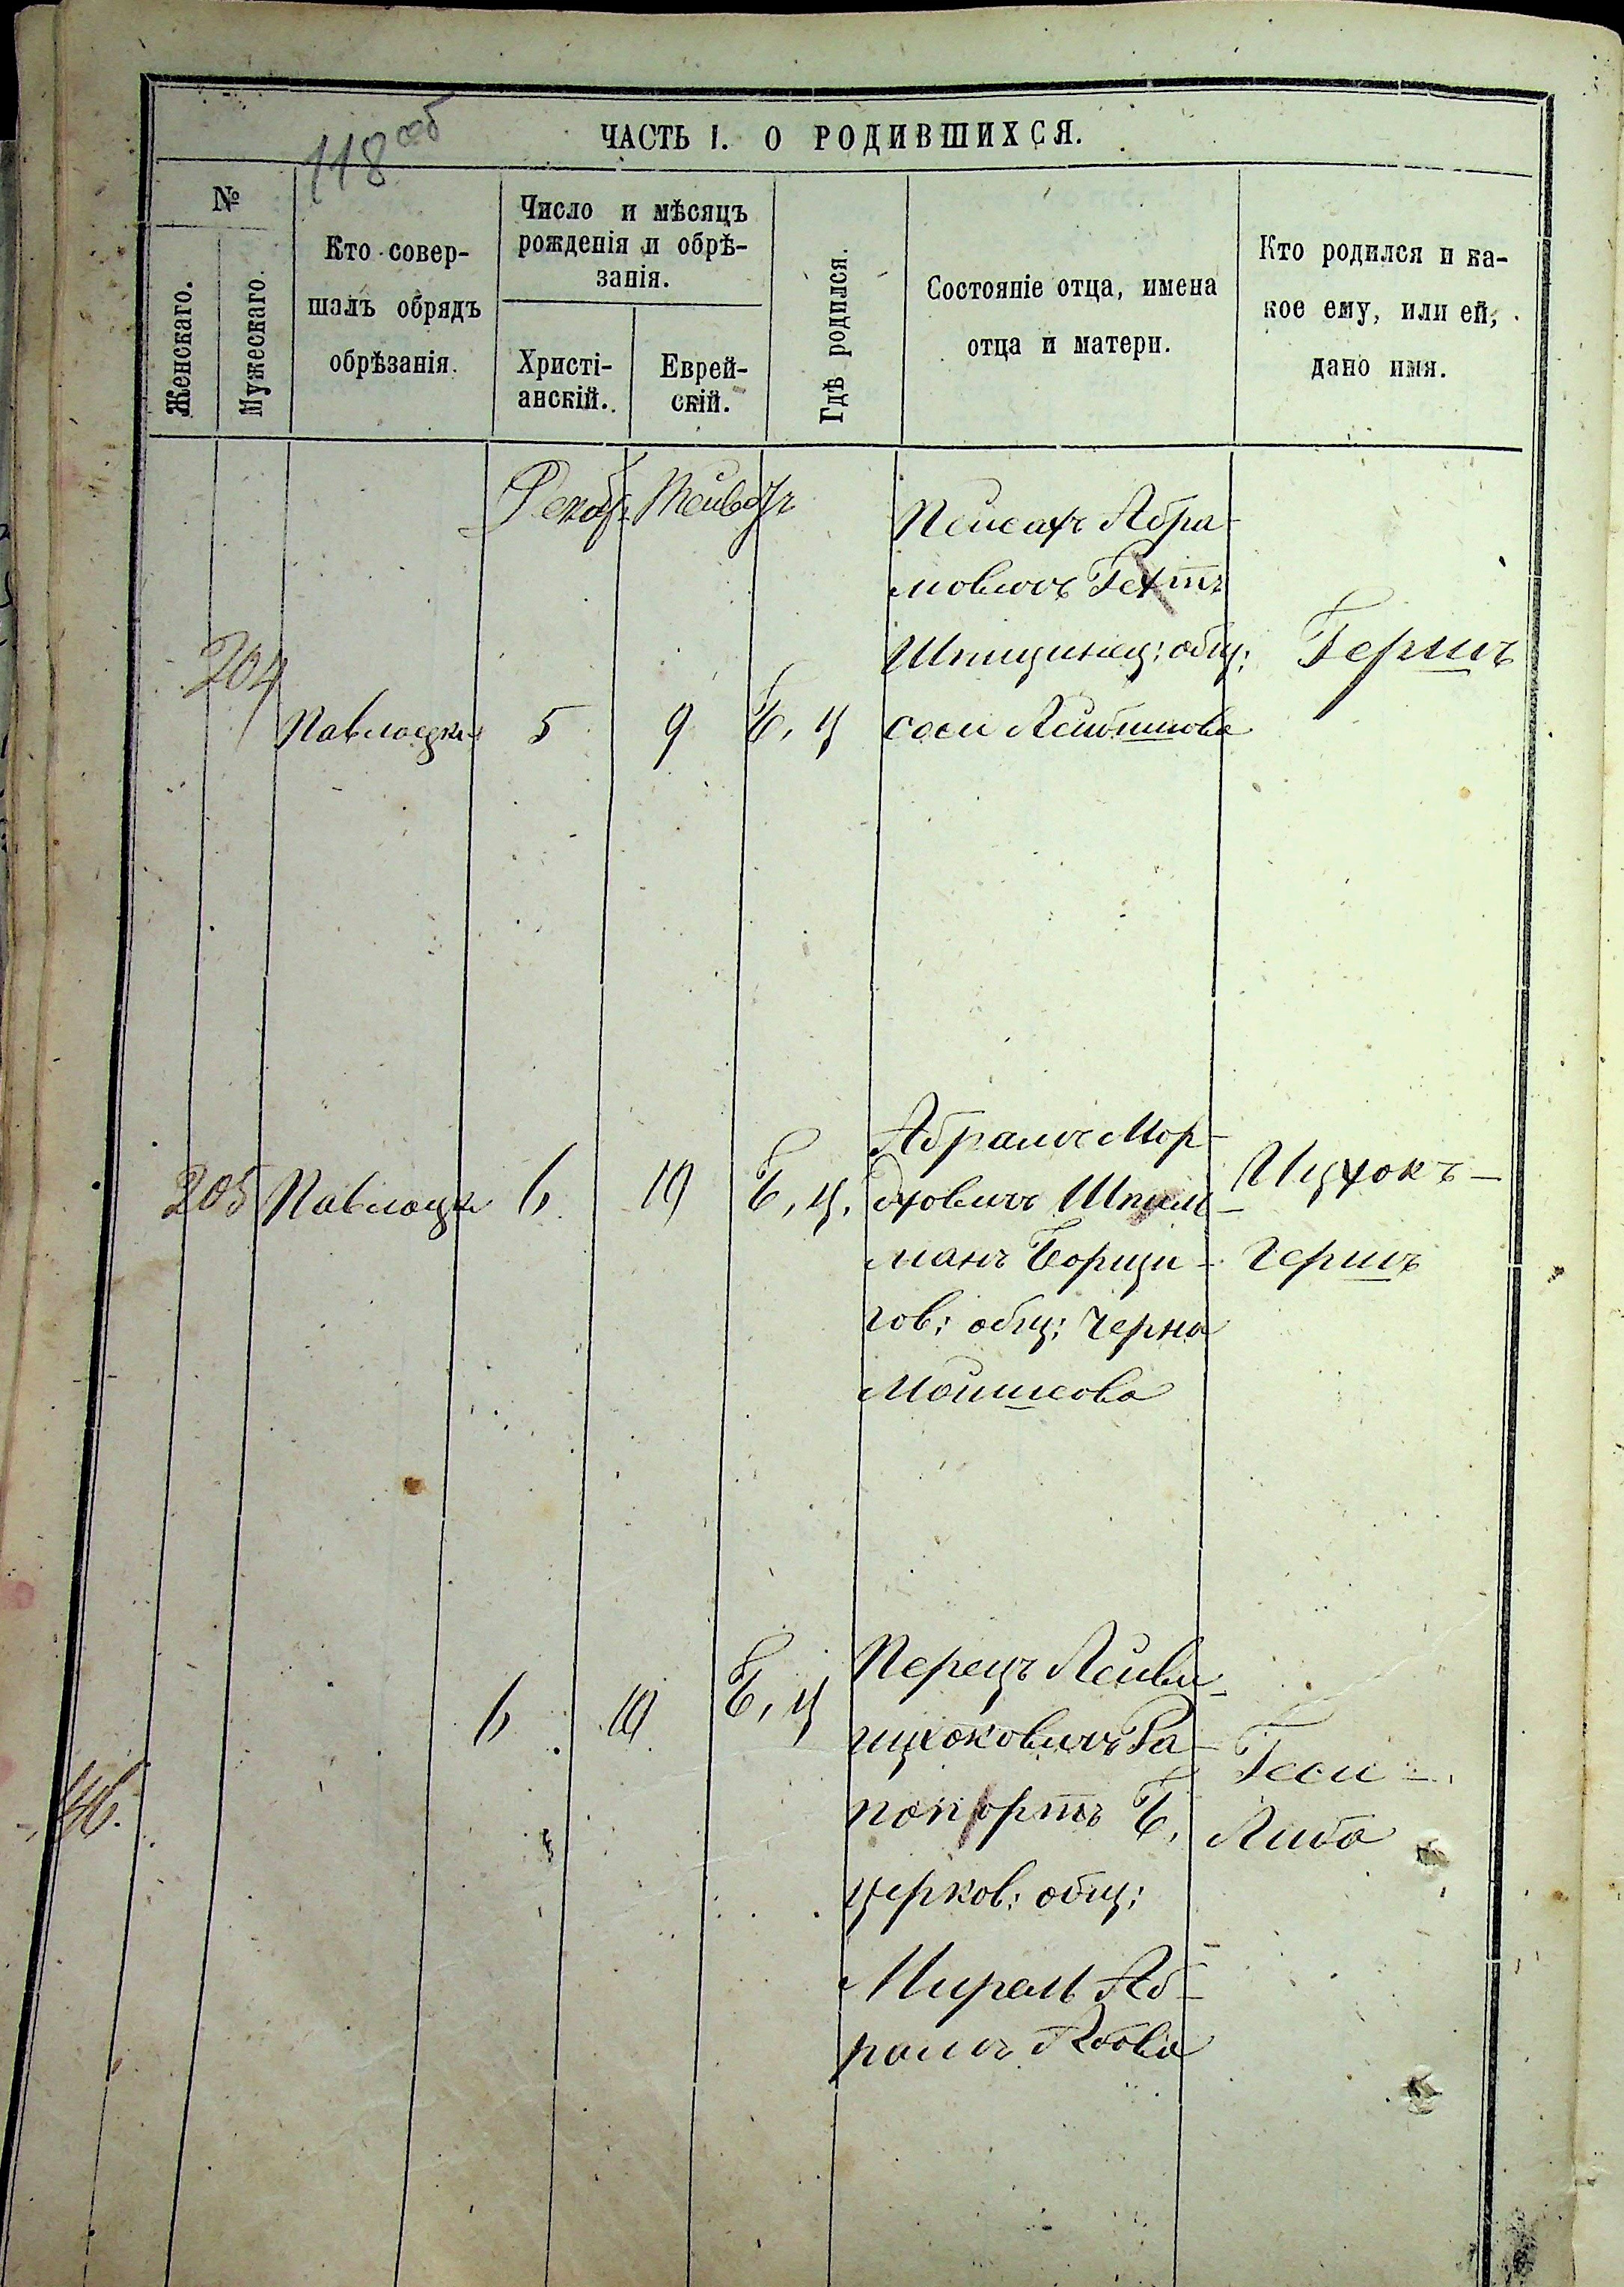 118 об
ЧАСТЬ I. О РОДИВШИХСЯ.
№
Женскаго.
Мужескаго.
Кто совер-
шалъ обрядъ
обрѣзанія.
Число и мѣсяцъ
рожденія и обрѣ-
занія.
Христі-
анскій.
Еврей-
скій.
Гдѣ родился.
Состояніе отца, имена
отца и матери.
Кто родился и ка-
кое ему, или ей,
дано имя.
Декабр. Тейветъ
204
Павлоцки
5
9
Б, ц
Пейсахъ Абра-
мовичъ Гехтъ
Шпицинец: общ:
соси Лейбишова
Гершъ
205
Павлоцки
6
10
Б, ц.
Абрамъ Мор-
дховичъ Шпил-
манъ Борщи-
гов: общ: Черна
Мошкова
Ицхокъ-
Гершъ
6
10
Б, ц
Перецъ Лейви-
ицхоковичъ Ра-
попортъ Б,
церков: общ:
Мирель Аб-
рамъ
Геси-
Либа